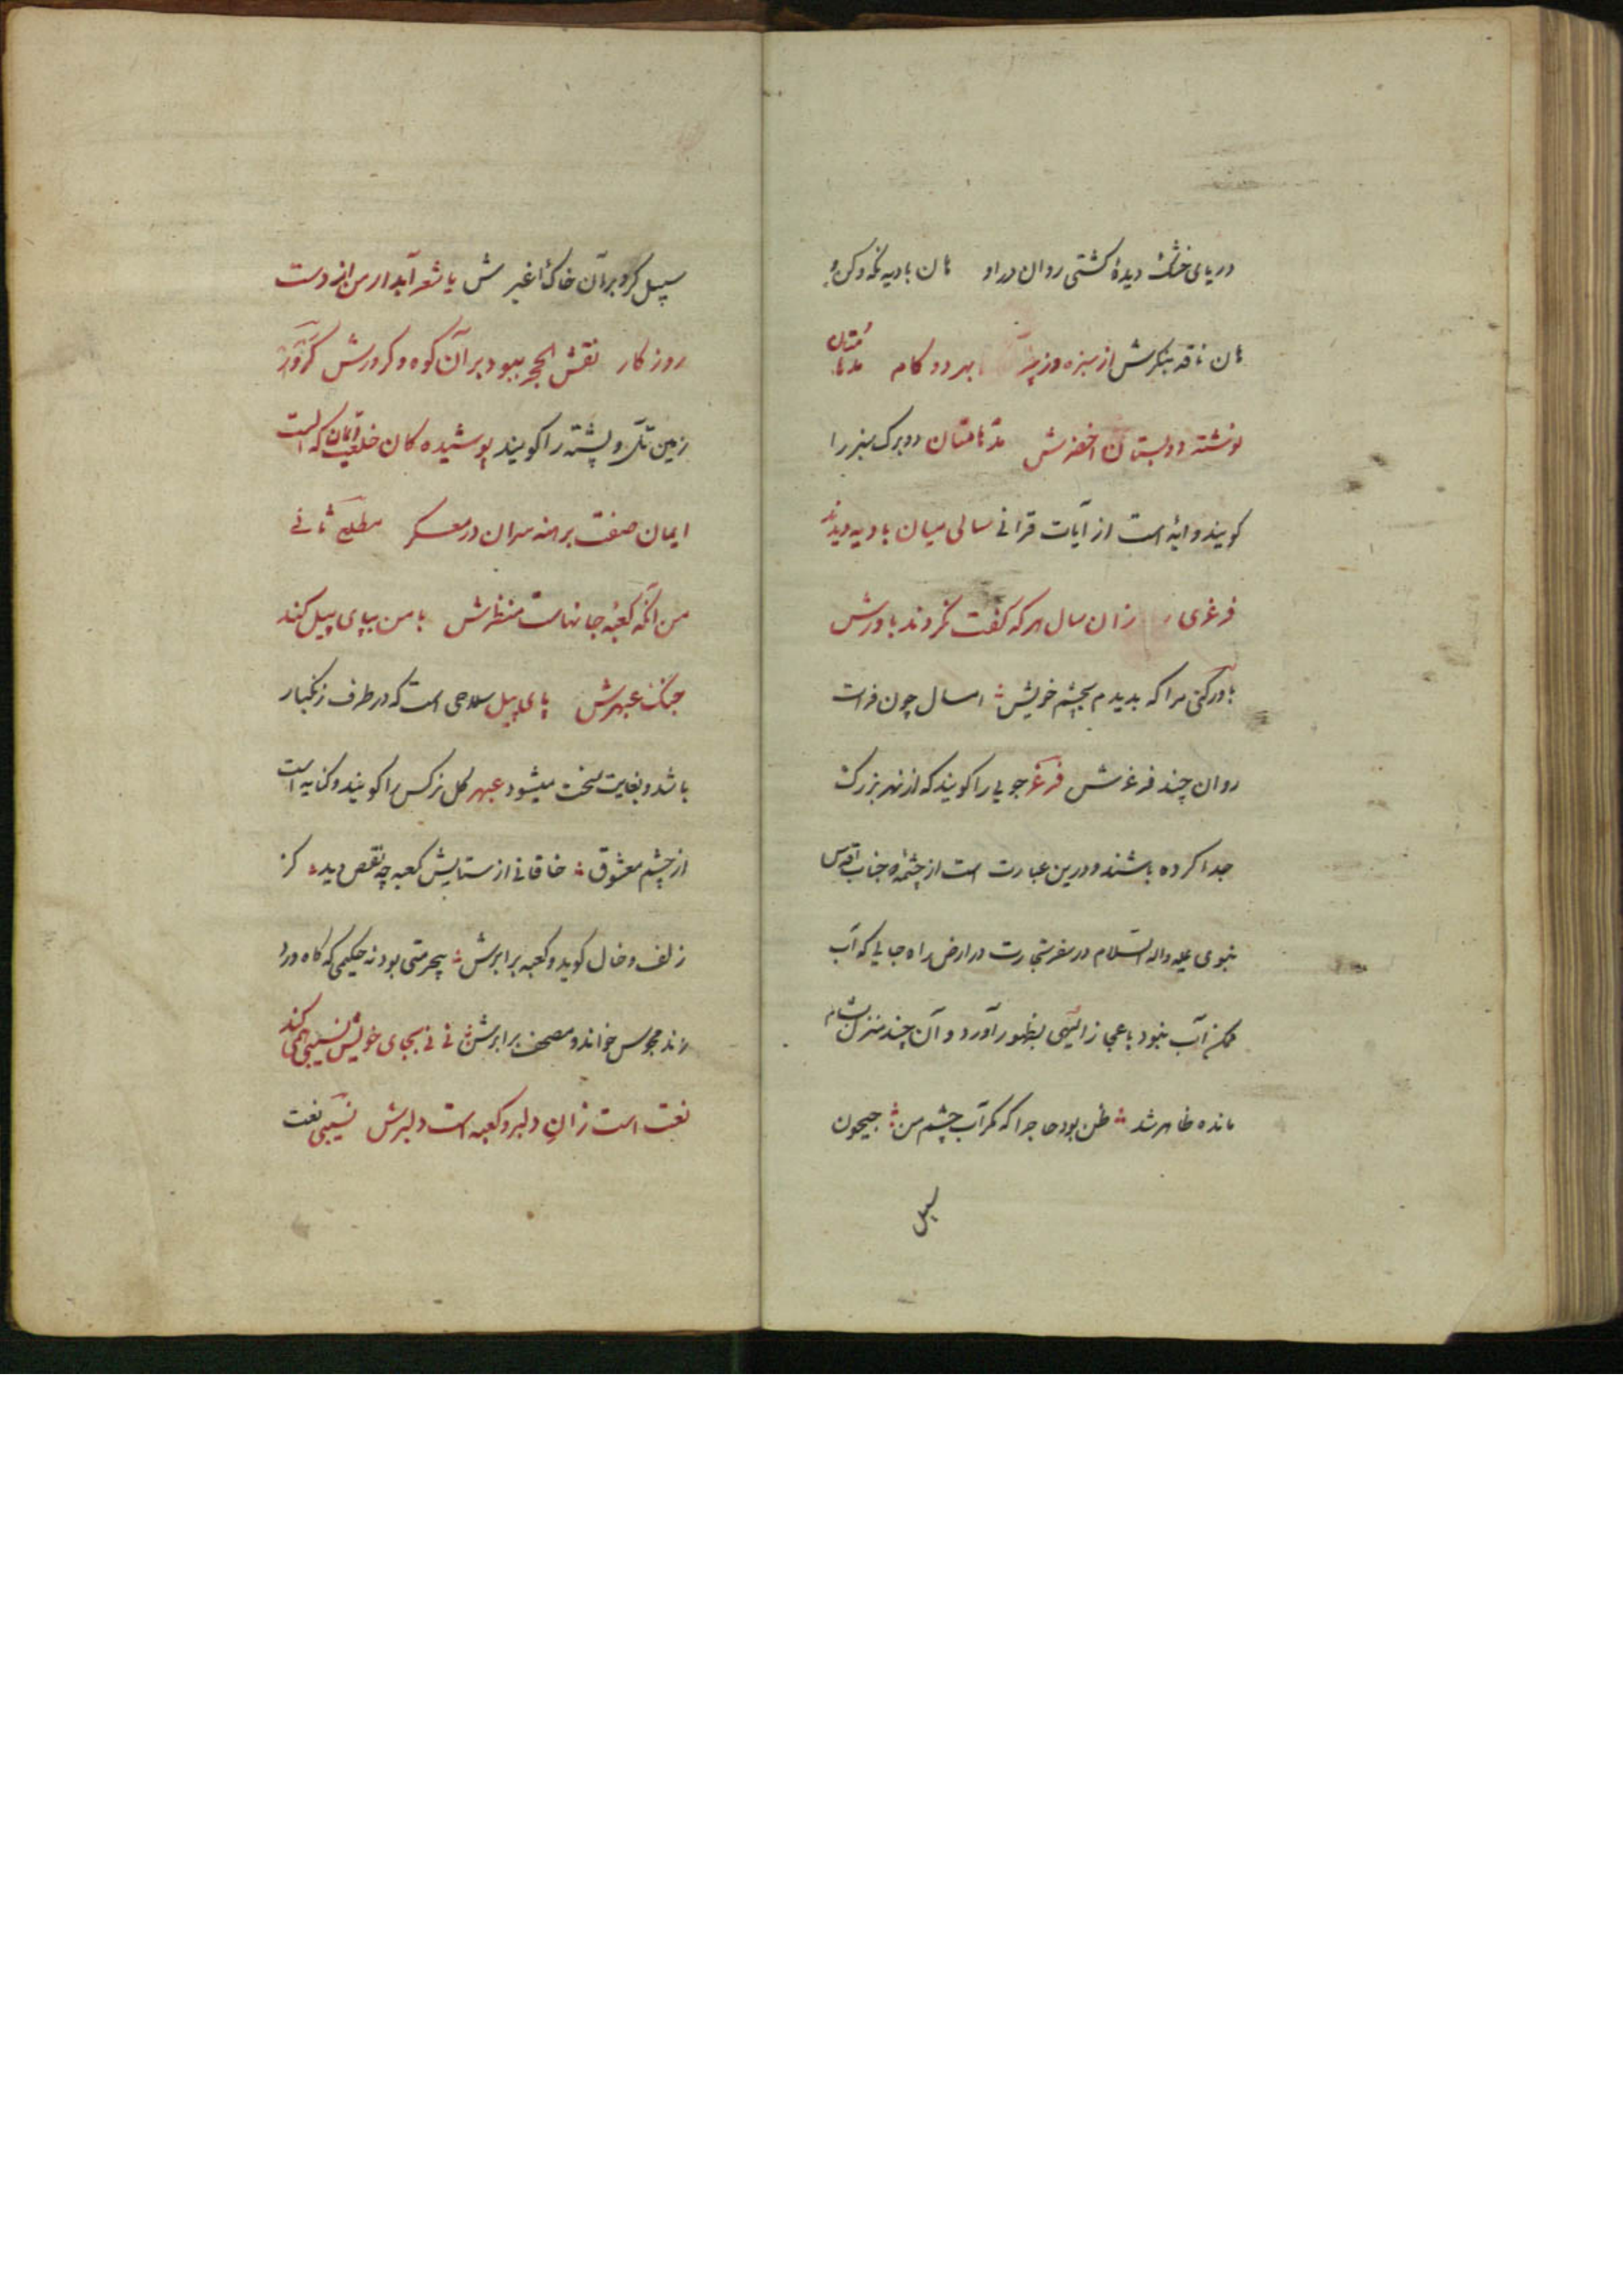 دریای خشک دیدهٔ کشتی روان در او هان بادیه نگه و کن و
هان ناقه بنگرش از سبزه وز بهر دو کام مدهامتان
نوشته دو بستان اخضرش مدهامتان دو برک سبز را
کویند و آیه است از آیات قرانی سالی میان بادیه دیدند
فرغری زان سال هر که گفت نکردند باورش
باور کنی مرا که بدیدم بچشم خویش امسال چون فرات
روان چند فرغرش فرغر جویی را کویند که از نهر بزرک
جدا کرده باشند و درین عبارت است از چشمهٔ جناب اقدس
نبوی علیه واله السلام در سفر تجارت در ارض راه جایی که آب
ممکن آب نبود باعجاز الهی بظهور آورد و آن چند منزل بشام
مانده ظاهر شد ظن بود حاجرا که مکر آب چشم من جیحون
سبیل
سبیل کرد بر آن خاک اغبرش یا شعر آبدار من از دست
روزکار نقش الحجر ببود بر آن کوه و کردرش کردر
زمین تل و پشته را کویند پوشیده کان خلعت ایمان که الست
ایمان صفت برهنه سران در معسکر مطلع ثانی
من آنکه کعبهٔ جانهاست منظرش با من بپای پیل کند
جنک عبهرش پای پیل سلاحی است که در طرف زنکبار
باشد و بغایت سخت میشود عبهر کل نرکس را کویند و کنایه است
از چشم معشوق خاقانی از ستایش کعبه چه نقص دید کز
زلف و خال کوید و کعبه برابرش بیحرمتی بود نه حکیمی که کاه ورد
زند مجوس خواند و مصحف برابرش نی نی بجای خویش نسیبی همی کند
نعت است زان دلبر و کعبه است دلبرش نسیبی نعت